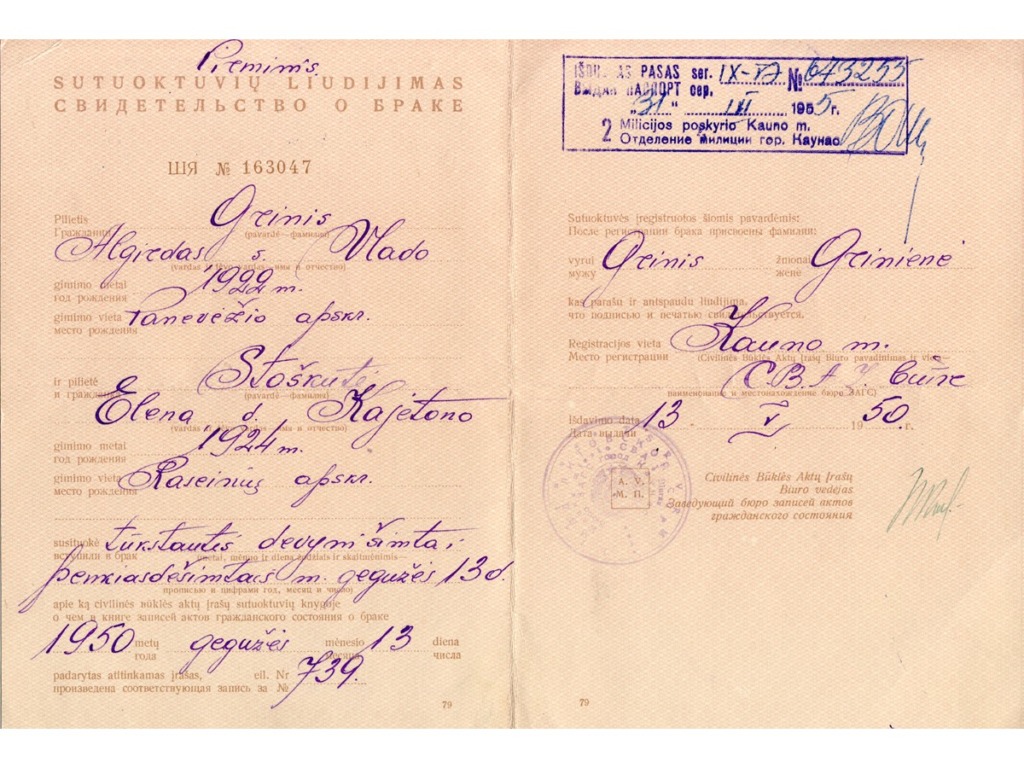 Pirminis
SUTUOKTUVIŲ LIUDIJIMAS
СВИДЕТЕЛЬСТВО О БРАКЕ
ШЯ № 163047
Pilietis
Гражданин
Grinis
(pavardė—фамилия)
Algirdas s. Vlado
gimimo metai
год рождения
1922 m.
gimimo vieta
место рождения
Panevėžio apskr.
ir pilietė
и гражданка
Stoškutė
(pavardė—фамилия)
Elena d. Kajetono
gimimo metai
год рождения
1924 m.
gimimo vieta
место рождения
Raseinių apskr.
susituokė
вступили в брак
tūkstantis devyni šimtai
penkiasdešimtais m. gegužės 13 d.
прописью и цифрами год, месяц и число)
apie ką civilinės būklės aktų įrašų sutuoktuvių knygoje
о чем в книге записей актов гражданского состояния о браке
1950 metų gegužės mėnesio 13 diena
года месяца числа
padarytas atitinkamas įrašas, eil. Nr
произведена соответствующая запись за №
739.
79
IŠDUOTAS PASAS ser. IX-ВЛ № 643255
ВЫДАН ПАСПОРТ сер.
„31" III 1955 г.
2 Milicijos poskyrio Kauno m.
Отделение милиции гор. Каунас
Sutuoktuvės įregistruotos šiomis pavardėmis:
После регистрации брака присвоены фамилии:
vyrui Grinis žmonai Grinienė
мужу жене
kas parašu ir antspaudu liudijima,
что подписью и печатью свидетельствуется.
Registracijos vieta
Место регистрации
Kauno m.
(Civilinės Būklės Aktų Įrašų Biuro pavadinimas ir vieta—
C.B.A.
наименование и местонахождение бюро ЗАГС)
Išdavimo data 13 V 1950 г.
Дата выдачи
A. V.
М. П.
Civilinės Būklės Aktų Įrašų
Biuro vedėjas
Заведующий бюро записей актов
гражданского состояния
79